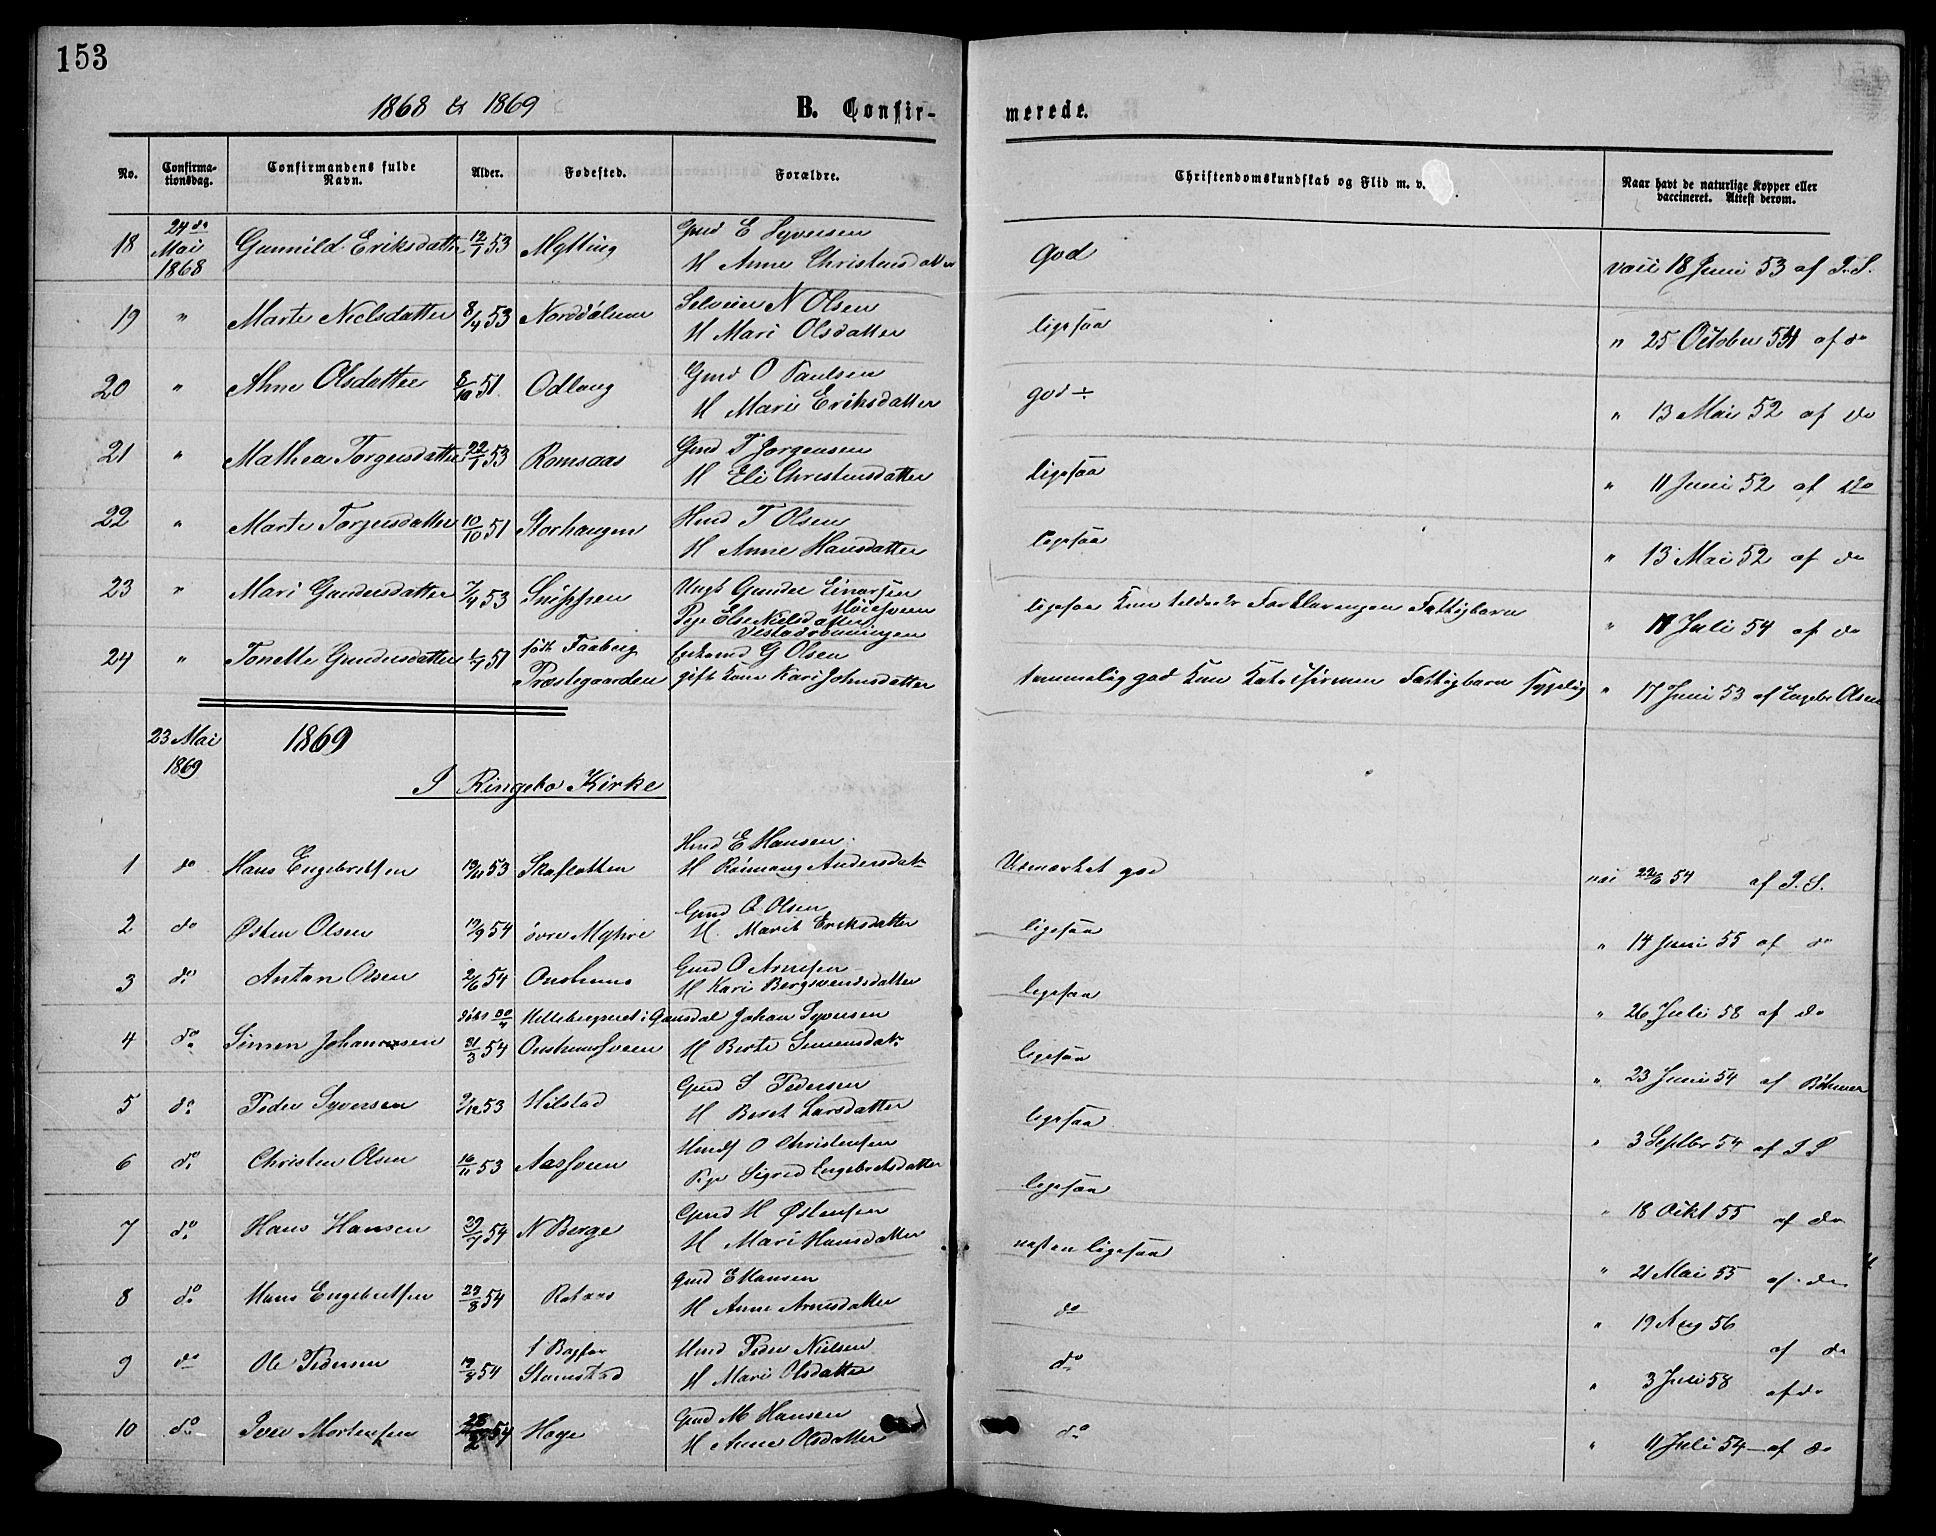 153
1868 & 1869 B. Confir- merede.
No. Confirma-tionsdag. Confirmandens fulde Navn. Alder. Fødested. Forældre. Christendomskundskab og Flid m. v. Naar havt de naturlige Kopper eller vaccineret. Attest derom.
18 24 do Mai 1868 Gunnild Eriksdatter 12/1 53 Mytting Gmd E Syversen H Anne Christensdatter god vacc 18 Juni 53 af P. S.
19 " Marte Nielsdatter 8/4 53 Norddølum Selveier N Olsen H Mari Olsdatter ligesaa " 25 October 54 af do
20 " Ahne Olsdatter 8/10 51 Odlaug Gmd O Paulsen H Marie Eriksdatter god ÷ " 13 Mai 52 af do
21 " Mathea Torgersdatter 22/1 53 Romsaas Gmd T Jorgensen H Eli Christensdatter Ligesaa " 11 Juni 52 af do
22 " Marte Torgersdatter 10/10 51 Storhaugen Hmd T Olsen H Anne Hansdatter ligesaa " 13 Mai 52 af do
23 " Mari Gundersdatter 7/4 53 Snippen Ungk Gunder Einarsen Pige Else Nielsdatter ligesaa Kun Forklaringen Fattigbarn " 11 Juli 54 af do
24 " Tonette Gundersdatter 1/7 51 født Faaberg Præstegaarden Enkemd G Olsen gift Kone Kari Johnsdatter temmelig god Kun Katechismen Fattigbarn sygelig " 17 Juni 53 af Engebr Olsen
23 Mai 1869 1869
I Ringebo Kirke
1 do Hans Engebretsen 19/11 53 Skaflotten Hmd E Hansen H Rønnaug Andersdatr Udmærket god vac 22/6 54 af P. S.
2 do Østen Olsen 19/9 54 øvre Myhre Gmd O Olsen H. Marit Eriksdatter ligesaa " 14 Juni 55 af do
3 do Anton Olsen 2/6 54 Onshuus Gmd O Arnesen H Kari Bergsvendsdatter ligesaa " 26 Juli 58 af do
4 do Simen Johannesen 31/3 54 døbt 30/4 i Gausdal Onshuussveen Johan Syversen H Berte Simensdatr ligesaa " 23 Juni 54 af Böhmer
5 do Peder Syversen 9/12 53 Hilstad Gmd S Pedersen H Beret Larsdatter ligesaa " 3 Septbr 54 af P S
6 do Christen Olsen 16/11 53 Aassveen Hmdf O Christensen Pige Sigrid Engebretsdatter ligesaa " 18 Octt 55 af do
7 do Hans Hansen 29/7 54 N Berge Gmd H Østensen H Mari Hansdatter næsten ligesaa " 21 Mai 55 af do
8 do Hans Engebretsen 29/8 54 Gmd E Hansen H Anne Arnesdatter do " 19 Aug 56 af do
9 do Ole Pedersen 19/8 54 Stumstad Hmd Peder Nielsen H Mari Olsdatter do " 3 Juni 58 af do
10 do Iver Mortensen 28/2 54 Hage Gmd M Hansen H Anne Olsdatter do " 11 Juli 54 af do